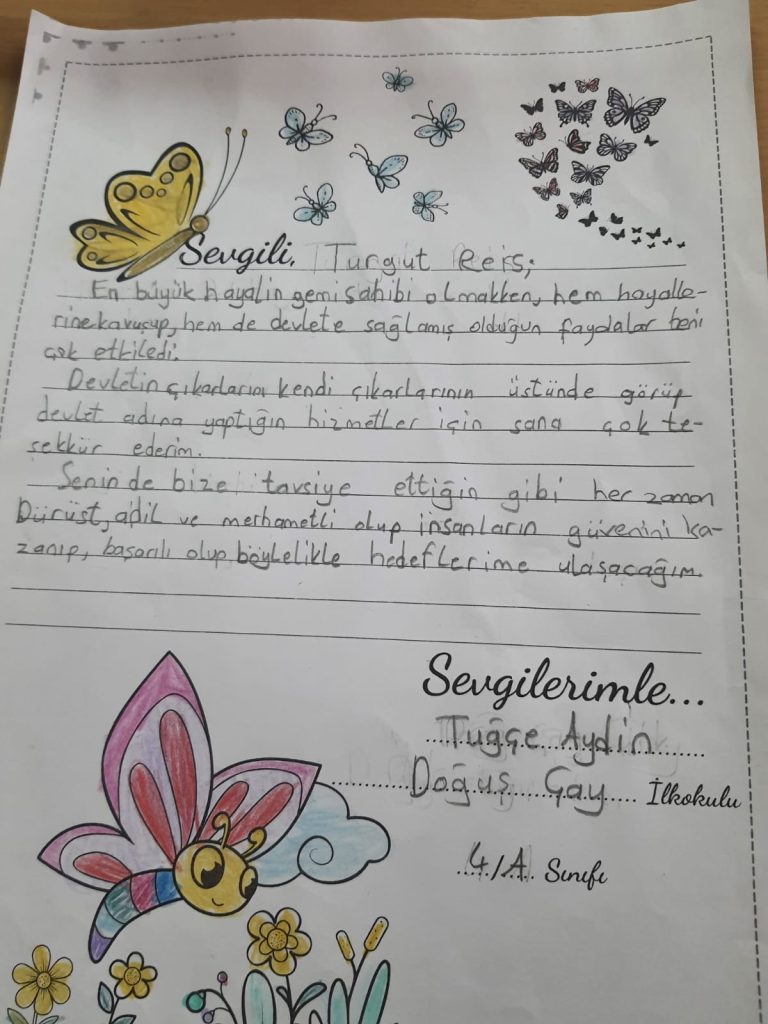 Sevgili, Turgut Reis;
En büyük hayalin gemi sahibi olmakken, hem hayalle-
rine kavuşup, hem de devlete sağlamış olduğun faydalar beni
çok etkiledi.
Devletin çıkarlarını kendi çıkarlarının üstünde görüp
devlet adına yaptığın hizmetler için sana çok te-
şekkür ederim.
Senin de bize tavsiye ettiğin gibi her zaman
Dürüst, adil ve merhametli olup insanların güvenini ka-
zanıp, başarılı olup böylelikle hedeflerime ulaşacağım.
Sevgilerimle...
Tuğçe Aydin
Doğuş Çay İlkokulu
4/A Sınıfı